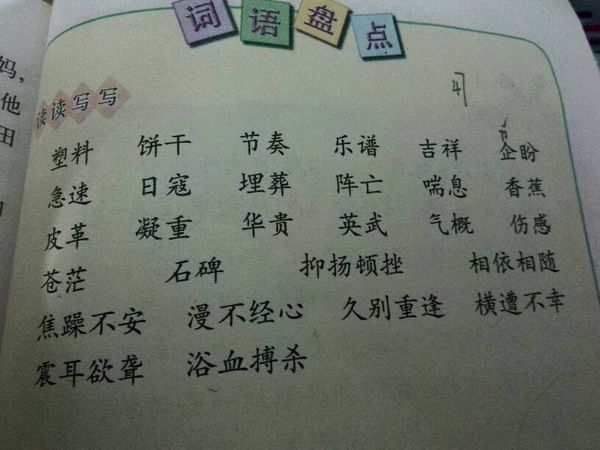 词语盘点
妈，
他
田
读读写写
塑料 饼干 节奏 乐谱 吉祥 企盼
急速 日寇 埋葬 阵亡 喘息 香蕉
皮革 凝重 华贵 英武 气概 伤感
苍茫 石碑 抑扬顿挫 相依相随
焦躁不安 漫不经心 久别重逢 横遭不幸
震耳欲聋 浴血搏杀